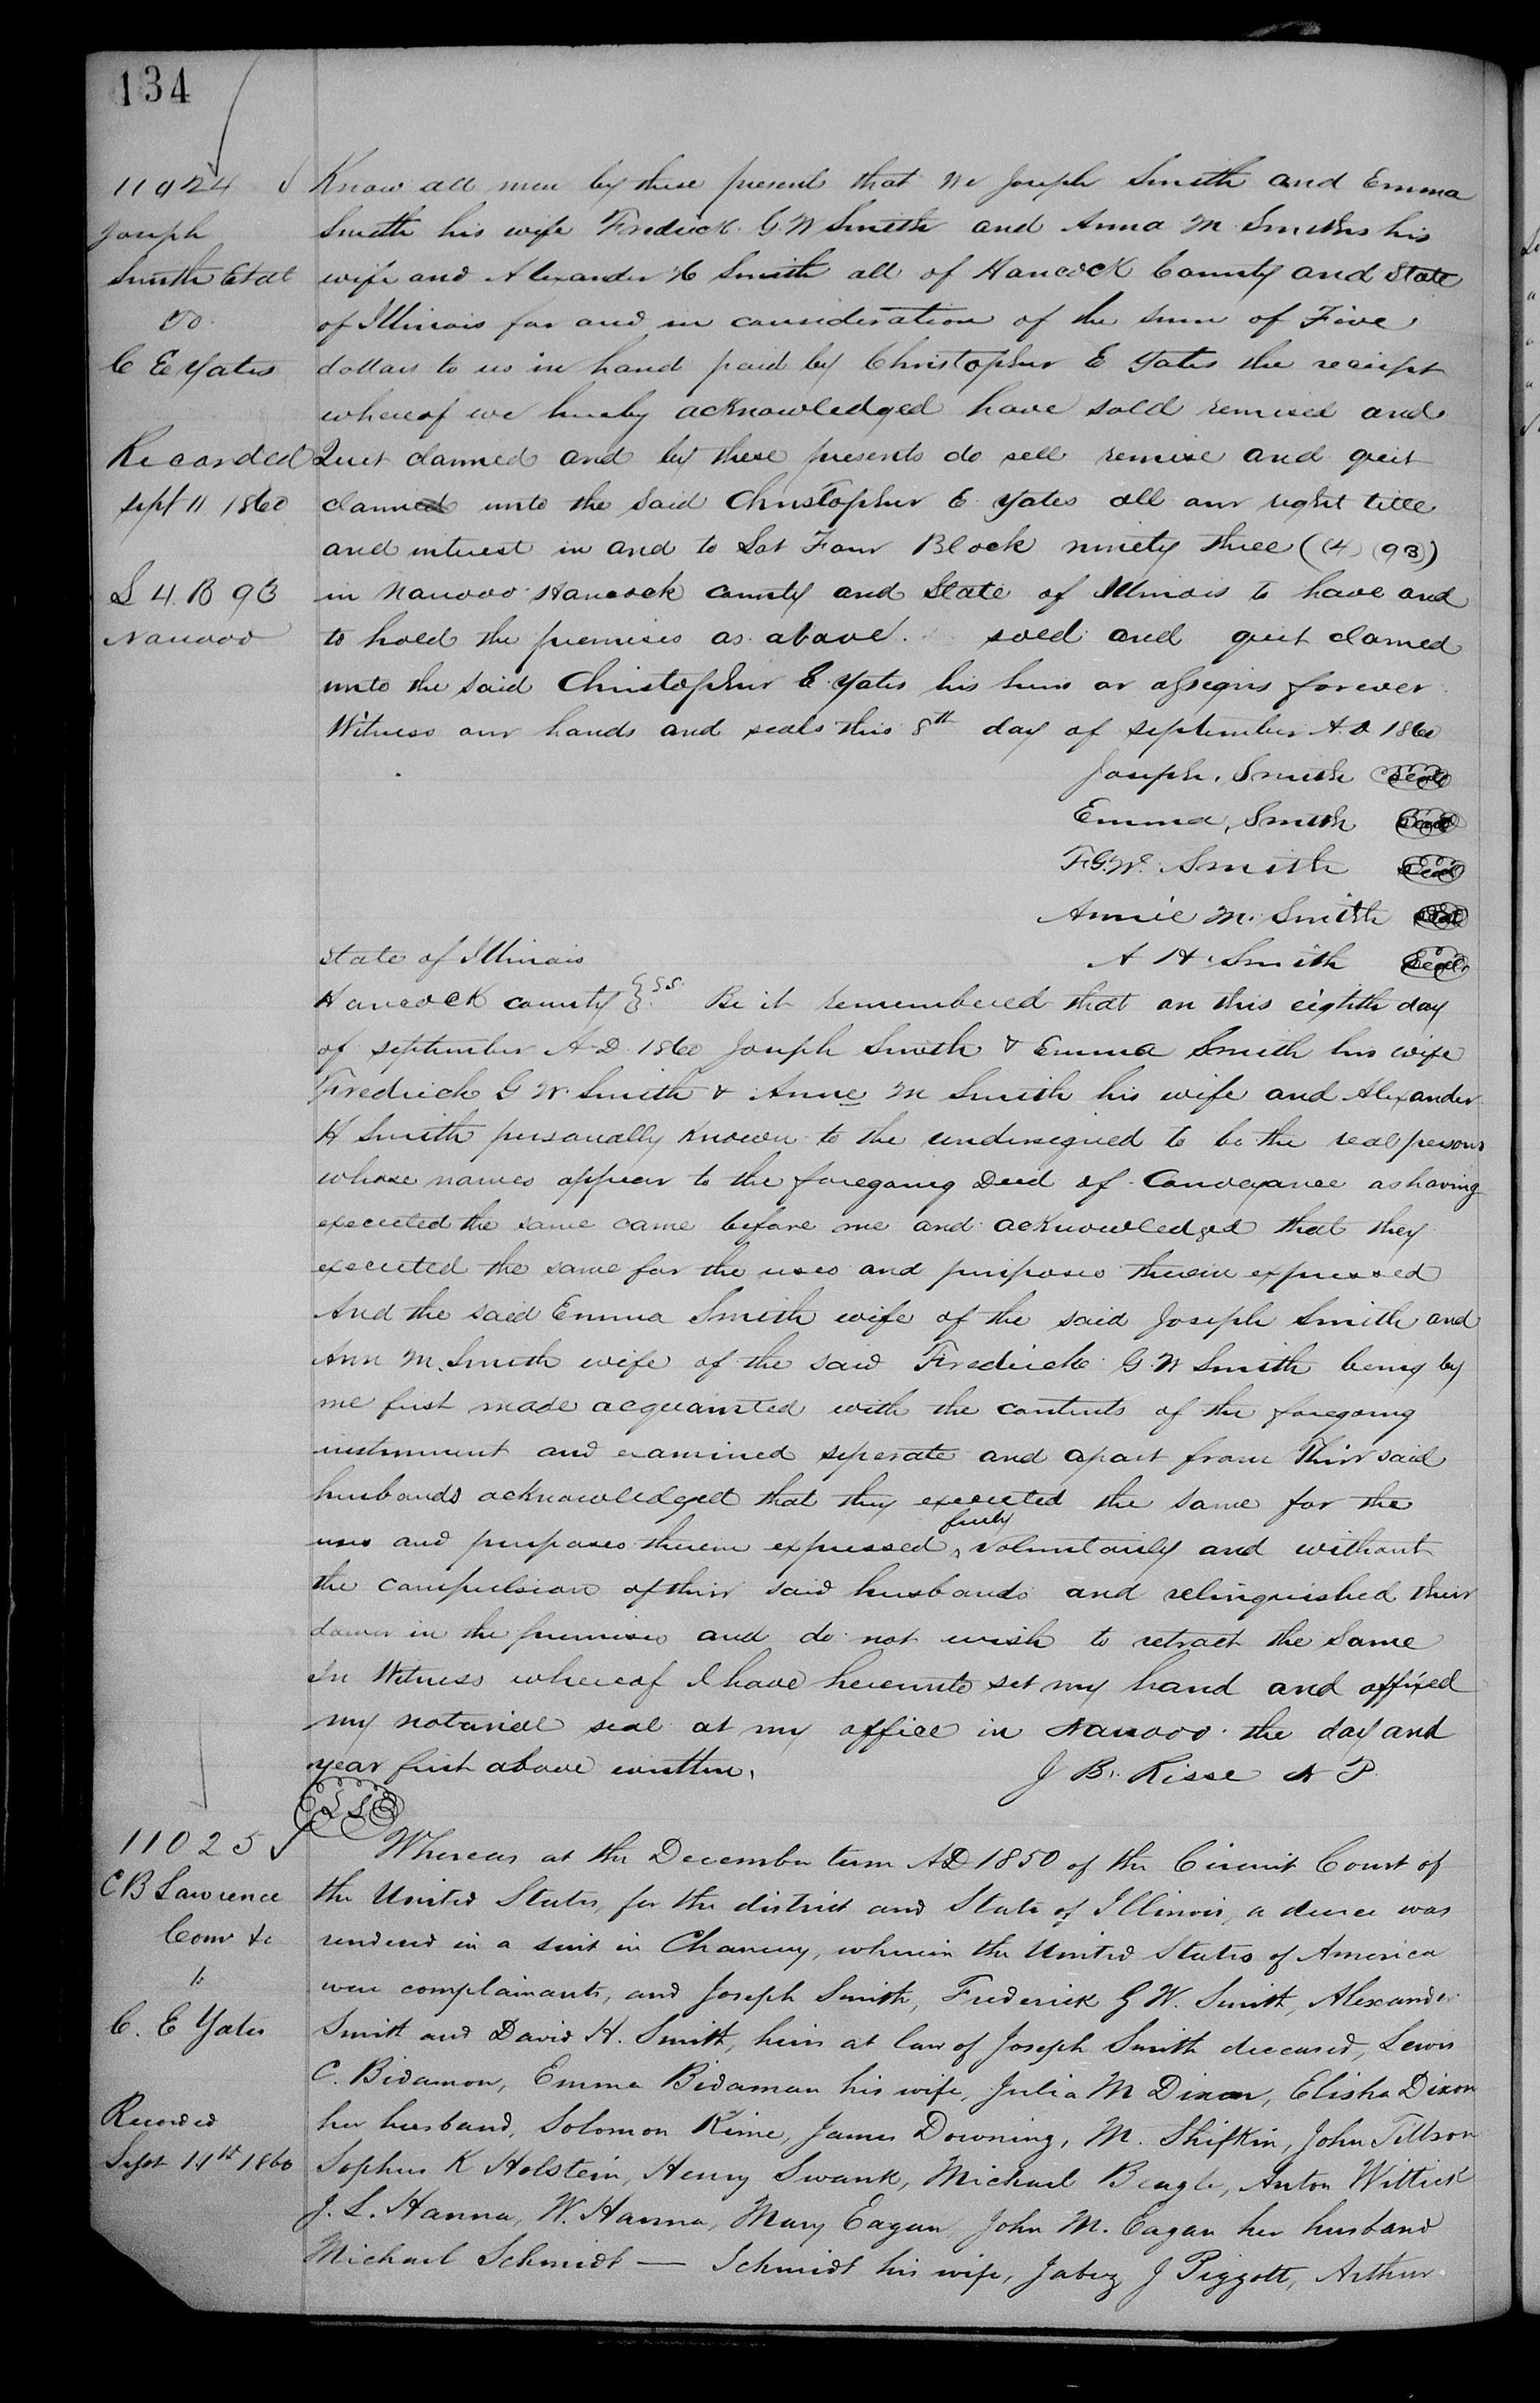 134
11924
Joseph
Smith Etal
To
C E Yates
Recorded
sept 11 1860
L 4. B 93
Nauvoo
Know all men by these presents that We Joseph Smith and Emma
Smith his wife Fredrick G. W Smith and Anna M Smiths his
wife and Alexander H Smith all of Hancock County and State
of Illinois for and in consideration of the sum of Five
dollars to us in hand paid by Christopher E Yates the receipt
whereof we hereby acknowledged have sold remised and
Quit claimed and by these presents do sell remise and quit
claimed unto the said Christopher E Yates all our right title
and interest in and to Lot Four Block ninety three ((4) (93))
in Nauvoo Hancock county and State of Illinois to have and
to hold the premises as above. sold and quit clamed
unto the said Christopher E. Yates his heirs or assigns forever
Witness our hands and seals this 8th day of September A. D 1860
Joseph. Smith Seal
Emma. Smith Seal
F. G. W. Smith Seal
Annie M. Smith Seal
A H. Smith Seal
State of Illinois
Hancock county } SS. Be it remembered that on this eighth day
of september A. D. 1860 Joseph Smith & Emma Smith his wife
Fredrick G W. Smith & Anne M Smith his wife and Alexander
H Smith personally known to the undersigned to be the real persons
whose names appear to the foregoing Deed of Conveyance as having
executed the same came before me and acknowledged that they
executed the same for the uses and purposes therein expressed
And the said Emma Smith wife of the said Joseph Smith and
Ann M. Smith wife of the said Fredrick G. W Smith being by
me first made acquainted with the contents of the foregoing
instrument and examined seperate and apart from Thir said
husbands acknowledged that they executed the same for the
uses and purposes therein expressed ‸ freely voluntarily and without
the compulsion of thir said husbands and relinquished their
dower in the premises and do not wish to retract the same
In Witness whereof I have hereunto set my hand and affixed
my notariel seal at my office in Nauvoo the day and
year first above written. J B. Risse N P.
L S
11025
C B Lawrence
Comr &c
to
C. E Yates
Recorded
Sept 14th 1860
Whereas at the December term AD 1850 of the Circuit Court of
the United States, for the district and State of Illinois, a decree was
rendered in a suit in Chancery, wherein the United States of America
were complainants, and Joseph Smith, Frederick G W. Smith, Alexander
Smith and David H. Smith, heirs at law of Joseph Smith deceased, Lewis
C. Bidamon, Emma Bidaman his wife, Julia M Dixon, Elisha Dixon
her husband, Solomon Kime, James Downing, M. Shifkin, John Tillson
Sophus K Holstein, Henry Swank, Michael Beagle, Anton Wittick
J. L. Hanna, W. Hanna, Mary Eagan, John M. Eagan her husband
Michael Schmidt — Schmidt his wife, Jabez J Piggott, Arthur